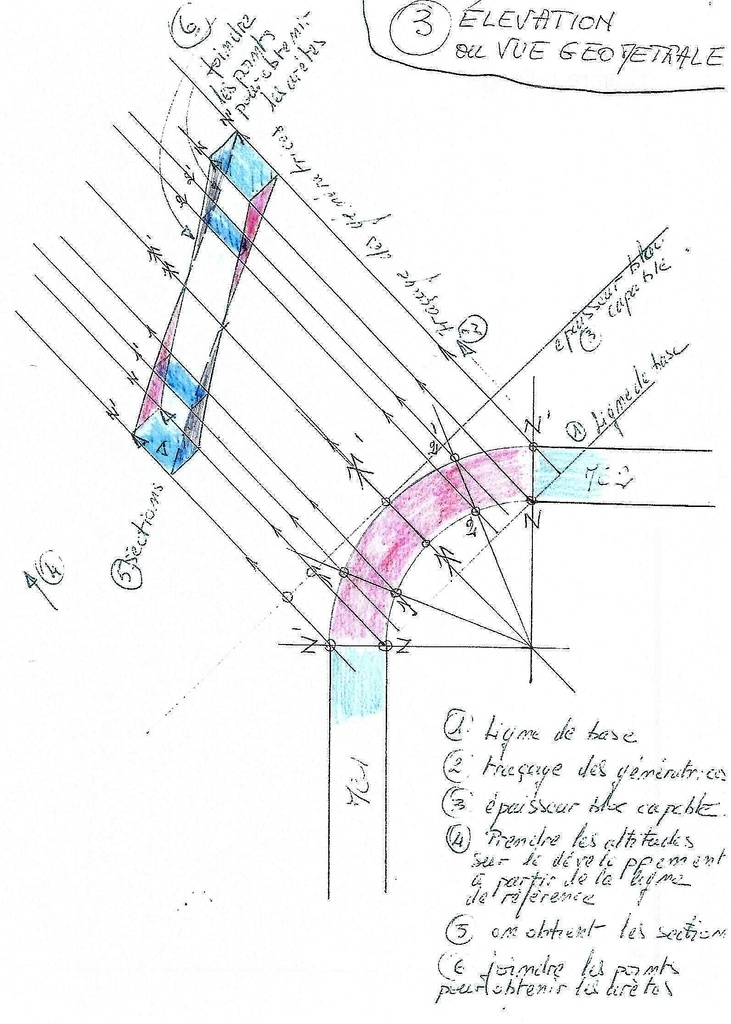 3 ÉLEVATION
ou VUE GEOMETRALE
6 joindre
les points
pour obtenir
les arêtes
traçage des génératrices
2
épaisseur bloc
3 capable
1 Ligne de base
4
5 sections
N'
N
N'
N
2'
2
1'
1
2 2'
1 1'
N'
N'
7C2
7C1
1 Ligne de base
2 traçage des génératrices
3 épaisseur bloc capable
4 Prendre les altitudes
sur le développement
à partir de la ligne
de référence
5 on obtient les section
6 joindre les points
pour obtenir les arètes